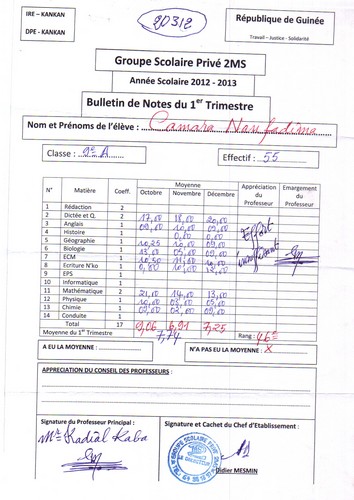 IRE – KANKAN
DPE - KANKAN
20312
République de Guinée
Travail – Justice - Solidarité
Groupe Scolaire Privé 2MS
Année Scolaire 2012 - 2013
Bulletin de Notes du 1er Trimestre
Nom et Prénoms de l'élève : Camara Nanfadima
Classe : 9e A
Effectif : 55
N° Matière Coeff. Moyenne Appréciation du Professeur Emargement du Professeur
Octobre Novembre Décembre
1 Rédaction 2
2 Dictée et Q. 2 17,00 18,00 20,00
3 Anglais 1 09,00 10,00 09,00
4 Histoire 1 0,00 0,00
5 Géographie 1 10,25 10,00 09,00
6 Biologie 1 13,00 05,00 09,00
7 ECM 1 10,50 11,00 10,00
8 Ecriture N'ko 1 0,00 10,00 12,00
9 EPS 1
10 Informatique 1
11 Mathématique 2 21,00 14,00 13,00
12 Physique 1 10,00 03,00 05,00
13 Chimie 1 09,00 02,00 09,00
14 Conduite 1
Effort insuffisant
Total 17 9,06 6,91 7,25
Moyenne du 1er Trimestre 7,74 Rang : 46e
A EU LA MOYENNE :
N'A PAS EU LA MOYENNE : X
APPRECIATION DU CONSEIL DES PROFESSEURS :
Signature du Professeur Principal :
Signature et Cachet du Chef d'Etablissement :
Mr Kadial Kaba
GROUPE SCOLAIRE
LE DIRECTEUR
Didier MESMIN